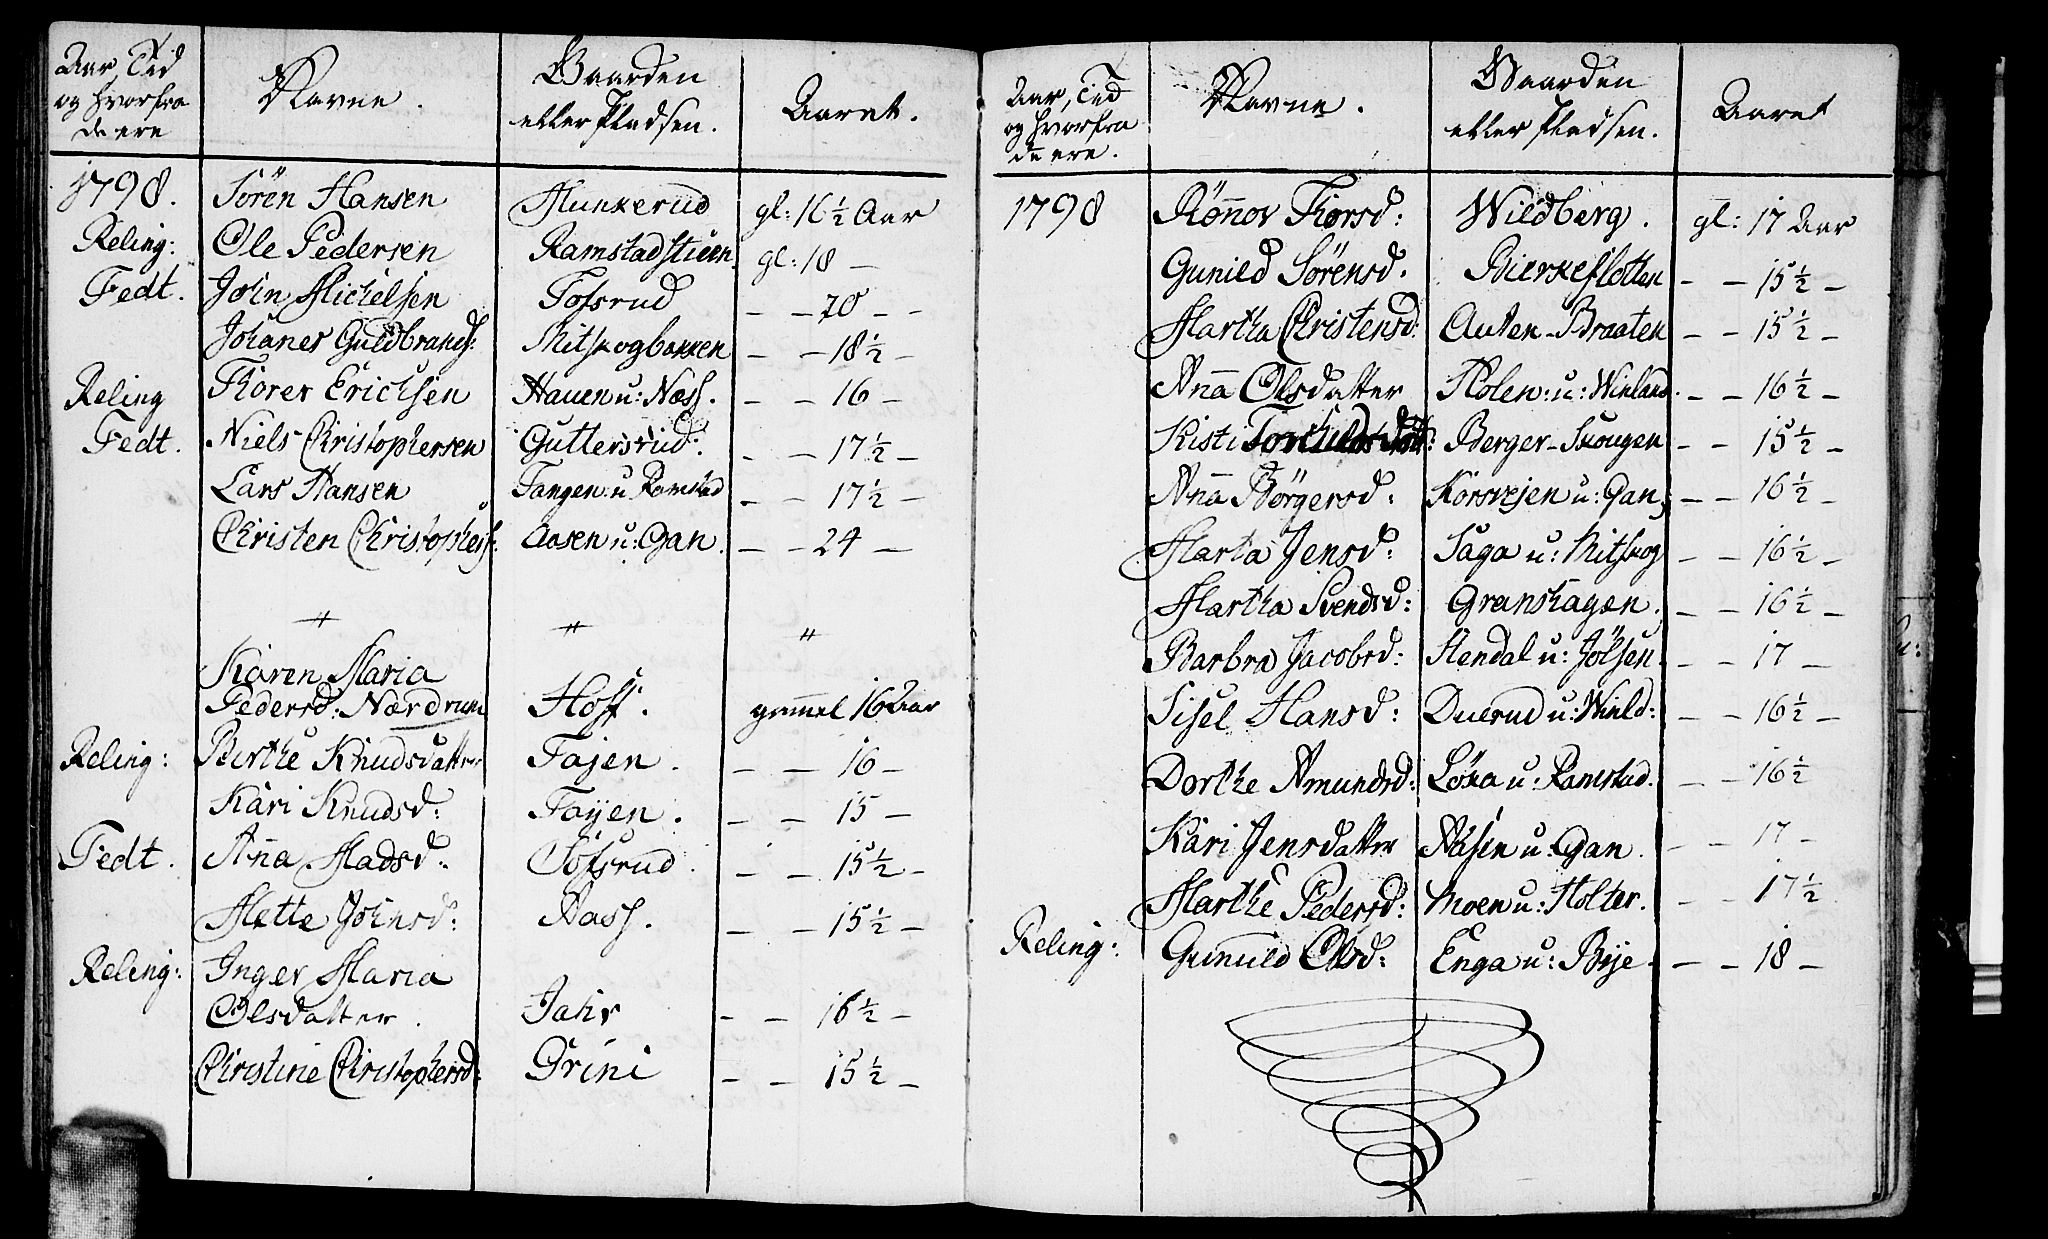 Aar, Tid
og hvorfra
de ere
Navne.
Gaarden
eller Pladsen.
Aaret.
1798. Sören Hansen Munkerud gl: 16 1/2 Aar
Reling: Ole Pedersen Ramstadstuen gl: 18 —
Fedt. John Michelsen Tofsrud — — 20 — —
Johanes Guldbrands: Mitskogbakken — — 18 1/2 —
Reling Thorer Erichsen Hauen u: Næss. — — 16 —
Fedt. Niels Christophersen Guttersrud. — — 17 1/2 —
Lars Hansen Tangen u Ramstad — — 17 1/2 —
Christen Christophers: Aasen u: Gan. — — 24 —
" " "
Karen Maria
Pedersd: Nærdrum Hoff. gammel 16 Aar
Reling: Birthe Knudsdatter Fajen. — — 16 —
Kari Knudsd: Fajen. — — 15 —
Fedt. Anna Madsd. Tofsrud. — — 15 1/2 —
Mette Johnsd: Aass. — — 15 1/2 —
Reling: Inger Maria
Olsdatter. Jahr — — 16 1/2 —
Christine Christophersd: Grini — — 15 1/2 —
Aar, Tid
og hvorfra
de ere.
Navne.
Gaarden
eller Pladsen.
Aaret
1798 Rönnov Thorsd: Wildberg. gl: 17 Aar
Gunild Sörensd. Bierkeslotten — — 15 1/2 —
Martha Christensd: Auten-Braaten — — 15 1/2 —
Anna Olsdatter Holen: u: Winland. — — 16 1/2 —
Kisti Berger-Skougen — — 15 1/2 —
Anna Börgersd: Korsvejen u: Gan; — — 16 1/2 —
Marta Jensd: Saga u: Mitskog — — 16 1/2 —
Martha Svendsd: Granshagen. — — 16 1/2 —
Barbra Jacobsd: Stendal u: Jölsen. — — 17 —
Sisel Hansd: Duerud u: Winld: — — 16 1/2 —
Dorthe Amundsd: Löxa u: Ramstad. — — 16 1/2
Kari Jensdatter Aasen u: Gan. — — 17 —
Marthe Pedersd: Moen u: Holter. — — 17 1/2
Reling: Gunuld Olsd: Enga u: Bye. — — 18 —